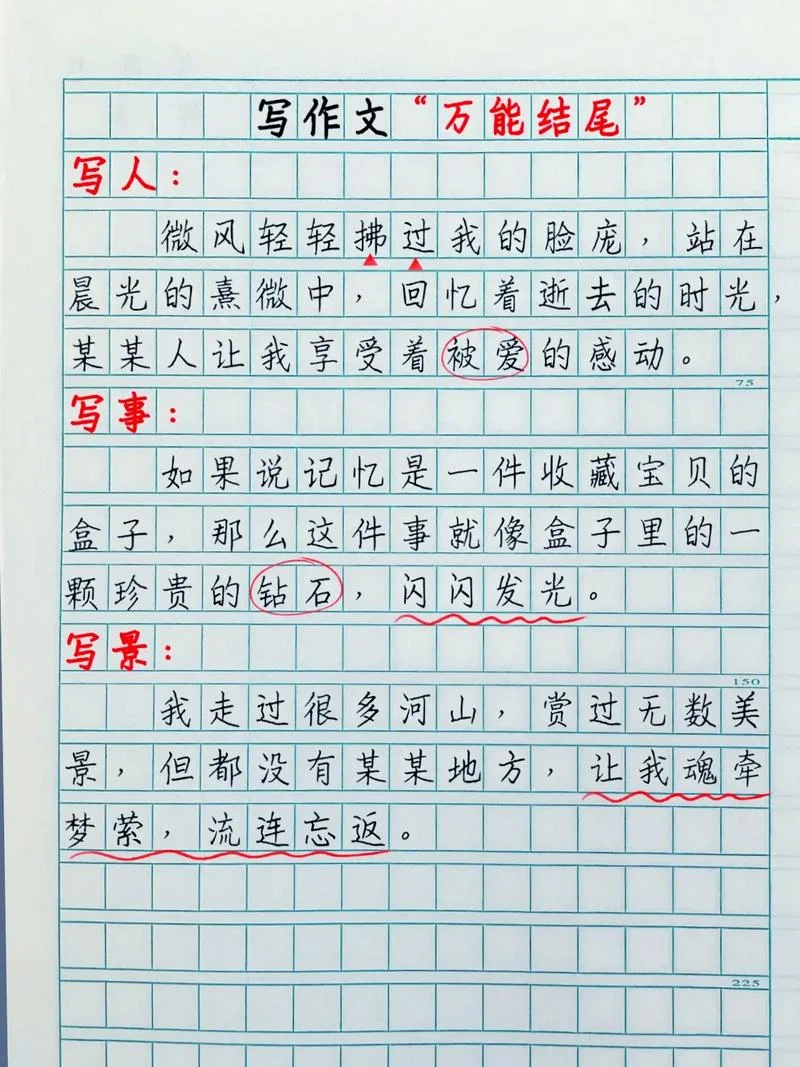 写作文“万能结尾”
写人：
微风轻轻拂过我的脸庞，站在
晨光的熹微中，回忆着逝去的时光，
某某人让我享受着被爱的感动。
75
写事：
如果说记忆是一件收藏宝贝的
盒子，那么这件事就像盒子里的一
颗珍贵的钻石，闪闪发光。
写景：
150
我走过很多河山，赏过无数美
景，但都没有某某地方，让我魂牵
梦萦，流连忘返。
225